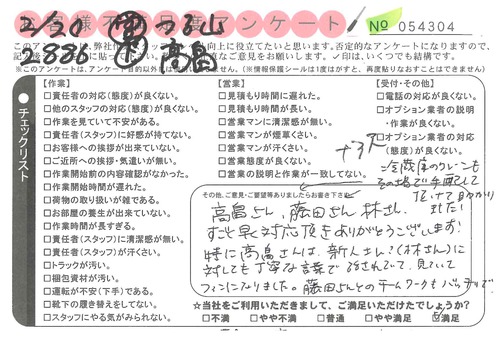 お客様不満足度アンケート
No 054304
2/20
2886
高畠
□にチェックを
このアンケートは、
向上に役立てたいと思います。否定的なアンケートになりますので、
なご意見をお願いします。✓印は、いくつでも結構です。
※このアンケートは、アンケート目的以外
(※情報保護シールは1度はがすと、再度貼りなおすことはできません)
チェックリスト
【作業】
□責任者の対応(態度)が良くない。
□他のスタッフの対応(態度)が良くない。
□作業を見ていて不安がある。
□責任者(スタッフ)に好感が持てない。
□お客様への挨拶が出来ていない。
□ご近所への挨拶・気遣いが無い。
□作業開始前の内容確認がなかった。
□作業開始時間が遅れた。
□荷物の取り扱いが雑である。
□お部屋の養生が出来ていない。
□作業時間が長すぎる。
□責任者(スタッフ)に清潔感が無い。
□責任者(スタッフ)が汗くさい。
□トラックが汚い。
□梱包資材が汚い。
□運転が不安(下手)である。
□靴下の履き替えをしてない。
□スタッフにやる気がみられない。
【営業】
□見積もり時間に遅れた。
□見積もり時間が長い。
□営業マンに清潔感が無い。
□営業マンが煙草くさい。
□営業マンが汗くさい。
□営業態度が良くない。
□営業の説明と作業が一致してない。
【受付・その他】
□電話の対応が良くない。
□オプション業者の説明
・作業が良くない。
□オプション業者の対応
(態度)が良くない。
冷蔵庫のクレーンも
その場で手配して
頂けて助かり
ました!
その他、ご意見・ご要望等ありましたらお書き下さい
高畠さん、藤田さん、林さん
すご早対応頂きありがとうございます!
特に高畠さんは、新人さん?(林さん)に
対しても丁寧な言葉で話されてて、見ていて
ファンになりました。藤田さんとのチームワークもバッチリで
☆当社をご利用いただきまして、ご満足いただけたでしょうか?
□不満 □やや不満 □普通 □やや満足 ☑満足